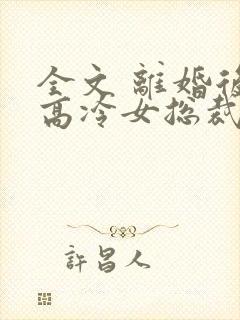 全文 離婚後
高冷女総裁
許昌人